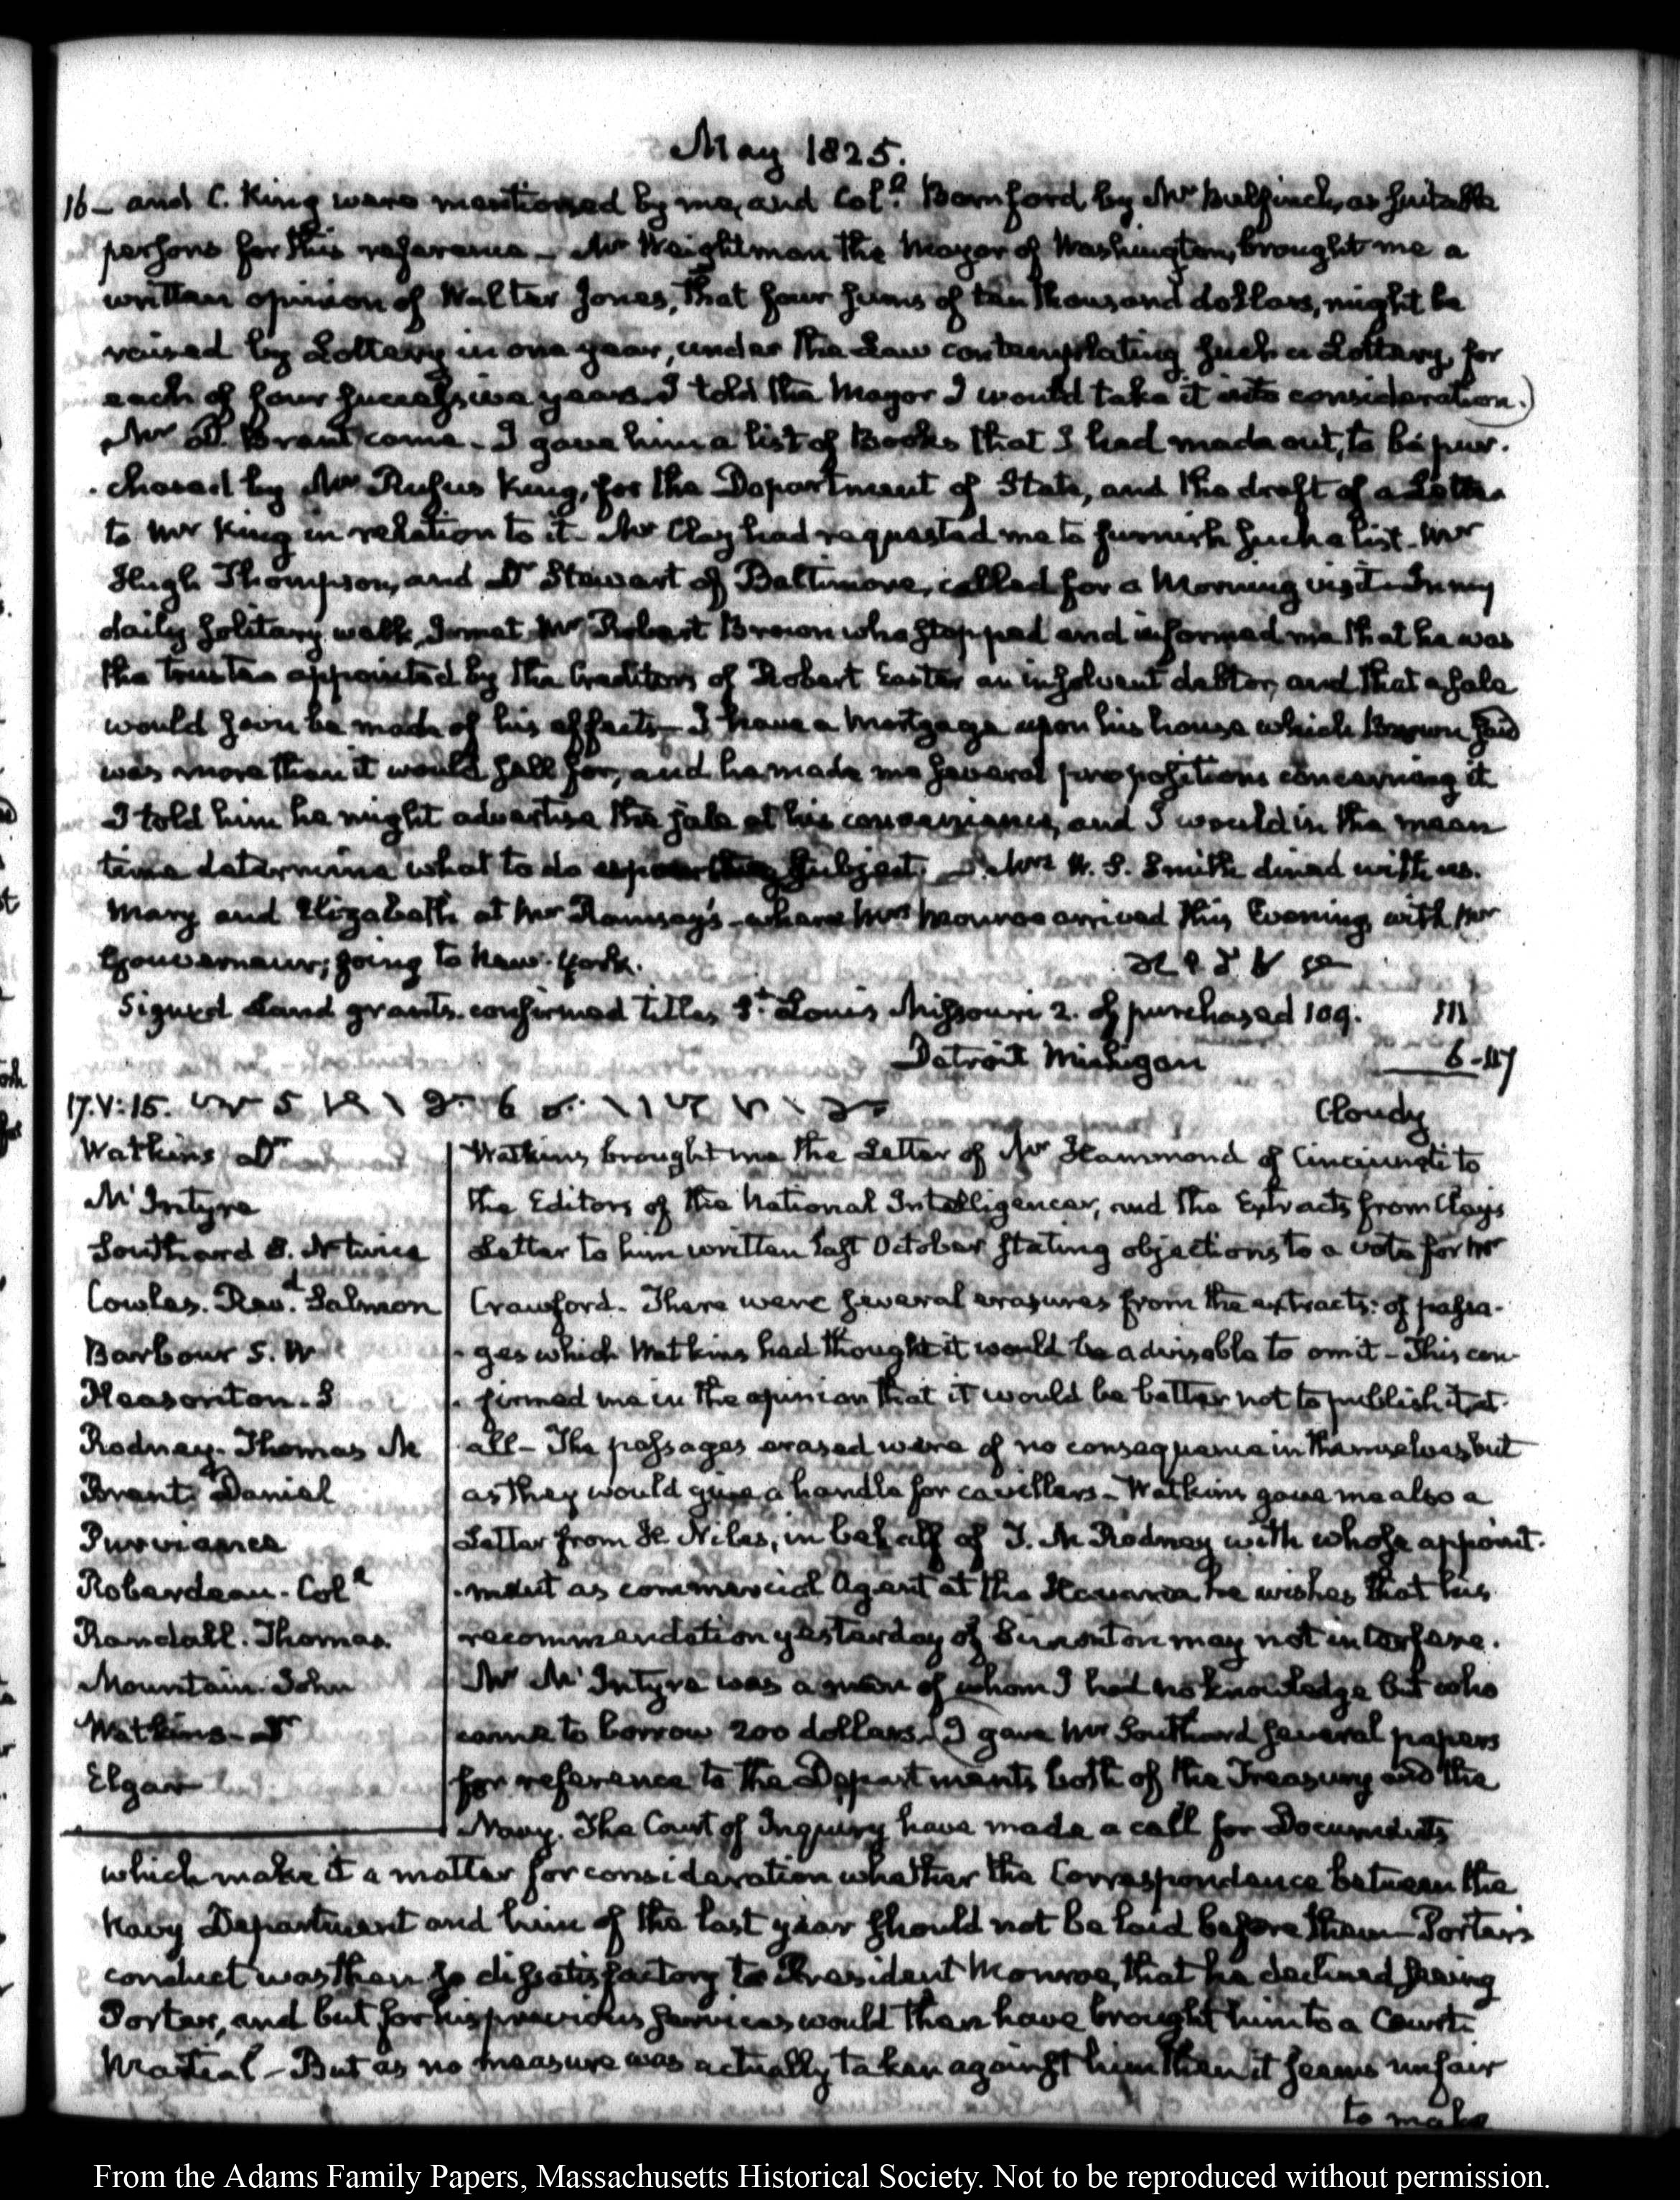 May 1825.
16 – and C. King were mentioned by me, and Coll. Bomford by Mr Bulfinch, as suitable
persons for this reference – Mr Weightman the Mayor of Washington, brought me a
written opinion of Walter Jones, that four sums of ten thousand dollars, might be
raised by Lottery in one year, under the Law contemplating such a Lottery, for
each of four successive years. I told the Mayor I would take it into consideration.)
Mr D. Brent came – I gave him a list of Books that I had made out, to be pur-
-chased by Mr Rufus King, for the Department of State, and the draft of a Letter
to Mr King in relation to it – Mr Clay had requested me to furnish such a list – Mr
Hugh Thompson, and Dr Stewart of Baltimore, called for a Morning visit – In my
daily solitary walk, I met Mr Robert Brown who stopped and informed me that he was
the trustee appointed by the Creditors of Robert Easter an insolvent debtor, and that a sale
would soon be made of his effects – I have a Mortgage upon his house which Brown said
was more than it would sell for, and he made me several propositions concerning it
I told him he might advertise the sale at his convenience, and I would in the mean
time determine what to do subject. – Mrs W. S. Smith dined with us.
Mary and Elizabeth at Mr Ramsay's – where Mrs Monroe arrived this Evening, with Mr
Gouverneur; going to New-York.
Signed Land grants. confirmed titles St. Louis Missouri 2. of purchased 109. 111
Detroit Michigan 6 – 117
17. V: 15. Cloudy
Watkins Dr
McIntyre
Southard S. N twice
Cowles. Revd. Salmon
Barbour S. W
Pleasonton. S
Rodney. Thomas M
Brent. Daniel
Purviance
Roberdeau. Coll
Randall. Thomas.
Mountain. John
Watkins – Dr
Elgar
Watkins brought me the Letter of Mr Hammond of Cincinnati to
the Editors of the National Intelligencer, and the Extracts from Clay's
Letter to him written last October stating objections to a vote for Mr
Crawford. There were several erasures from the extracts: of passa-
-ges which Watkins had thought it would be advisable to omit – This con-
-firmed me in the opinion that it would be better not to publish it at
all – The passages erased were of no consequence in themselves but
as they would give a handle for cavillers – Watkins gave me also a
Letter from H. Niles, in behalf of T. M Rodney with whose appoint-
-ment as commercial Agent at the Havanna he wishes that his
recommendation yesterday of Simonton may not interfere.
Mr McIntyre was a man of whom I had no knowledge but who
came to borrow 200 dollars. (I gave Mr Southard several papers
for reference to the Departments both of the Treasury and the
Navy. The Court of Inquiry have made a call for Documents
which make it a matter for consideration whether the Correspondence between the
Navy Department and him of the last year should not be laid before them – Porter's
conduct was then so dissatisfactory to President Monroe, that he declined seeing
Porter, and but for his previous services would then have brought him to a Court
Martial – But as no measure was actually taken against him then it seems unfair
to make
From the Adams Family Papers, Massachusetts Historical Society. Not to be reproduced without permission.